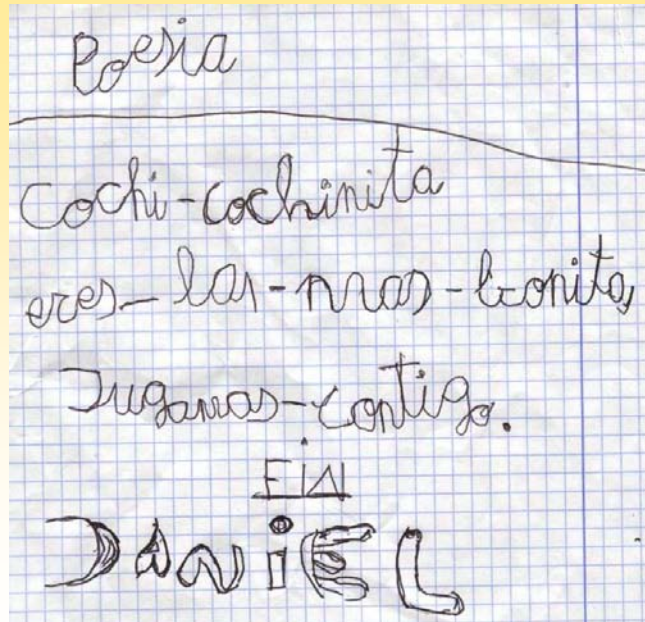 Poesia
Cochi-cochinita
eres-las-mas-bonita
Jugamos-contigo.
FiN
DANiEL